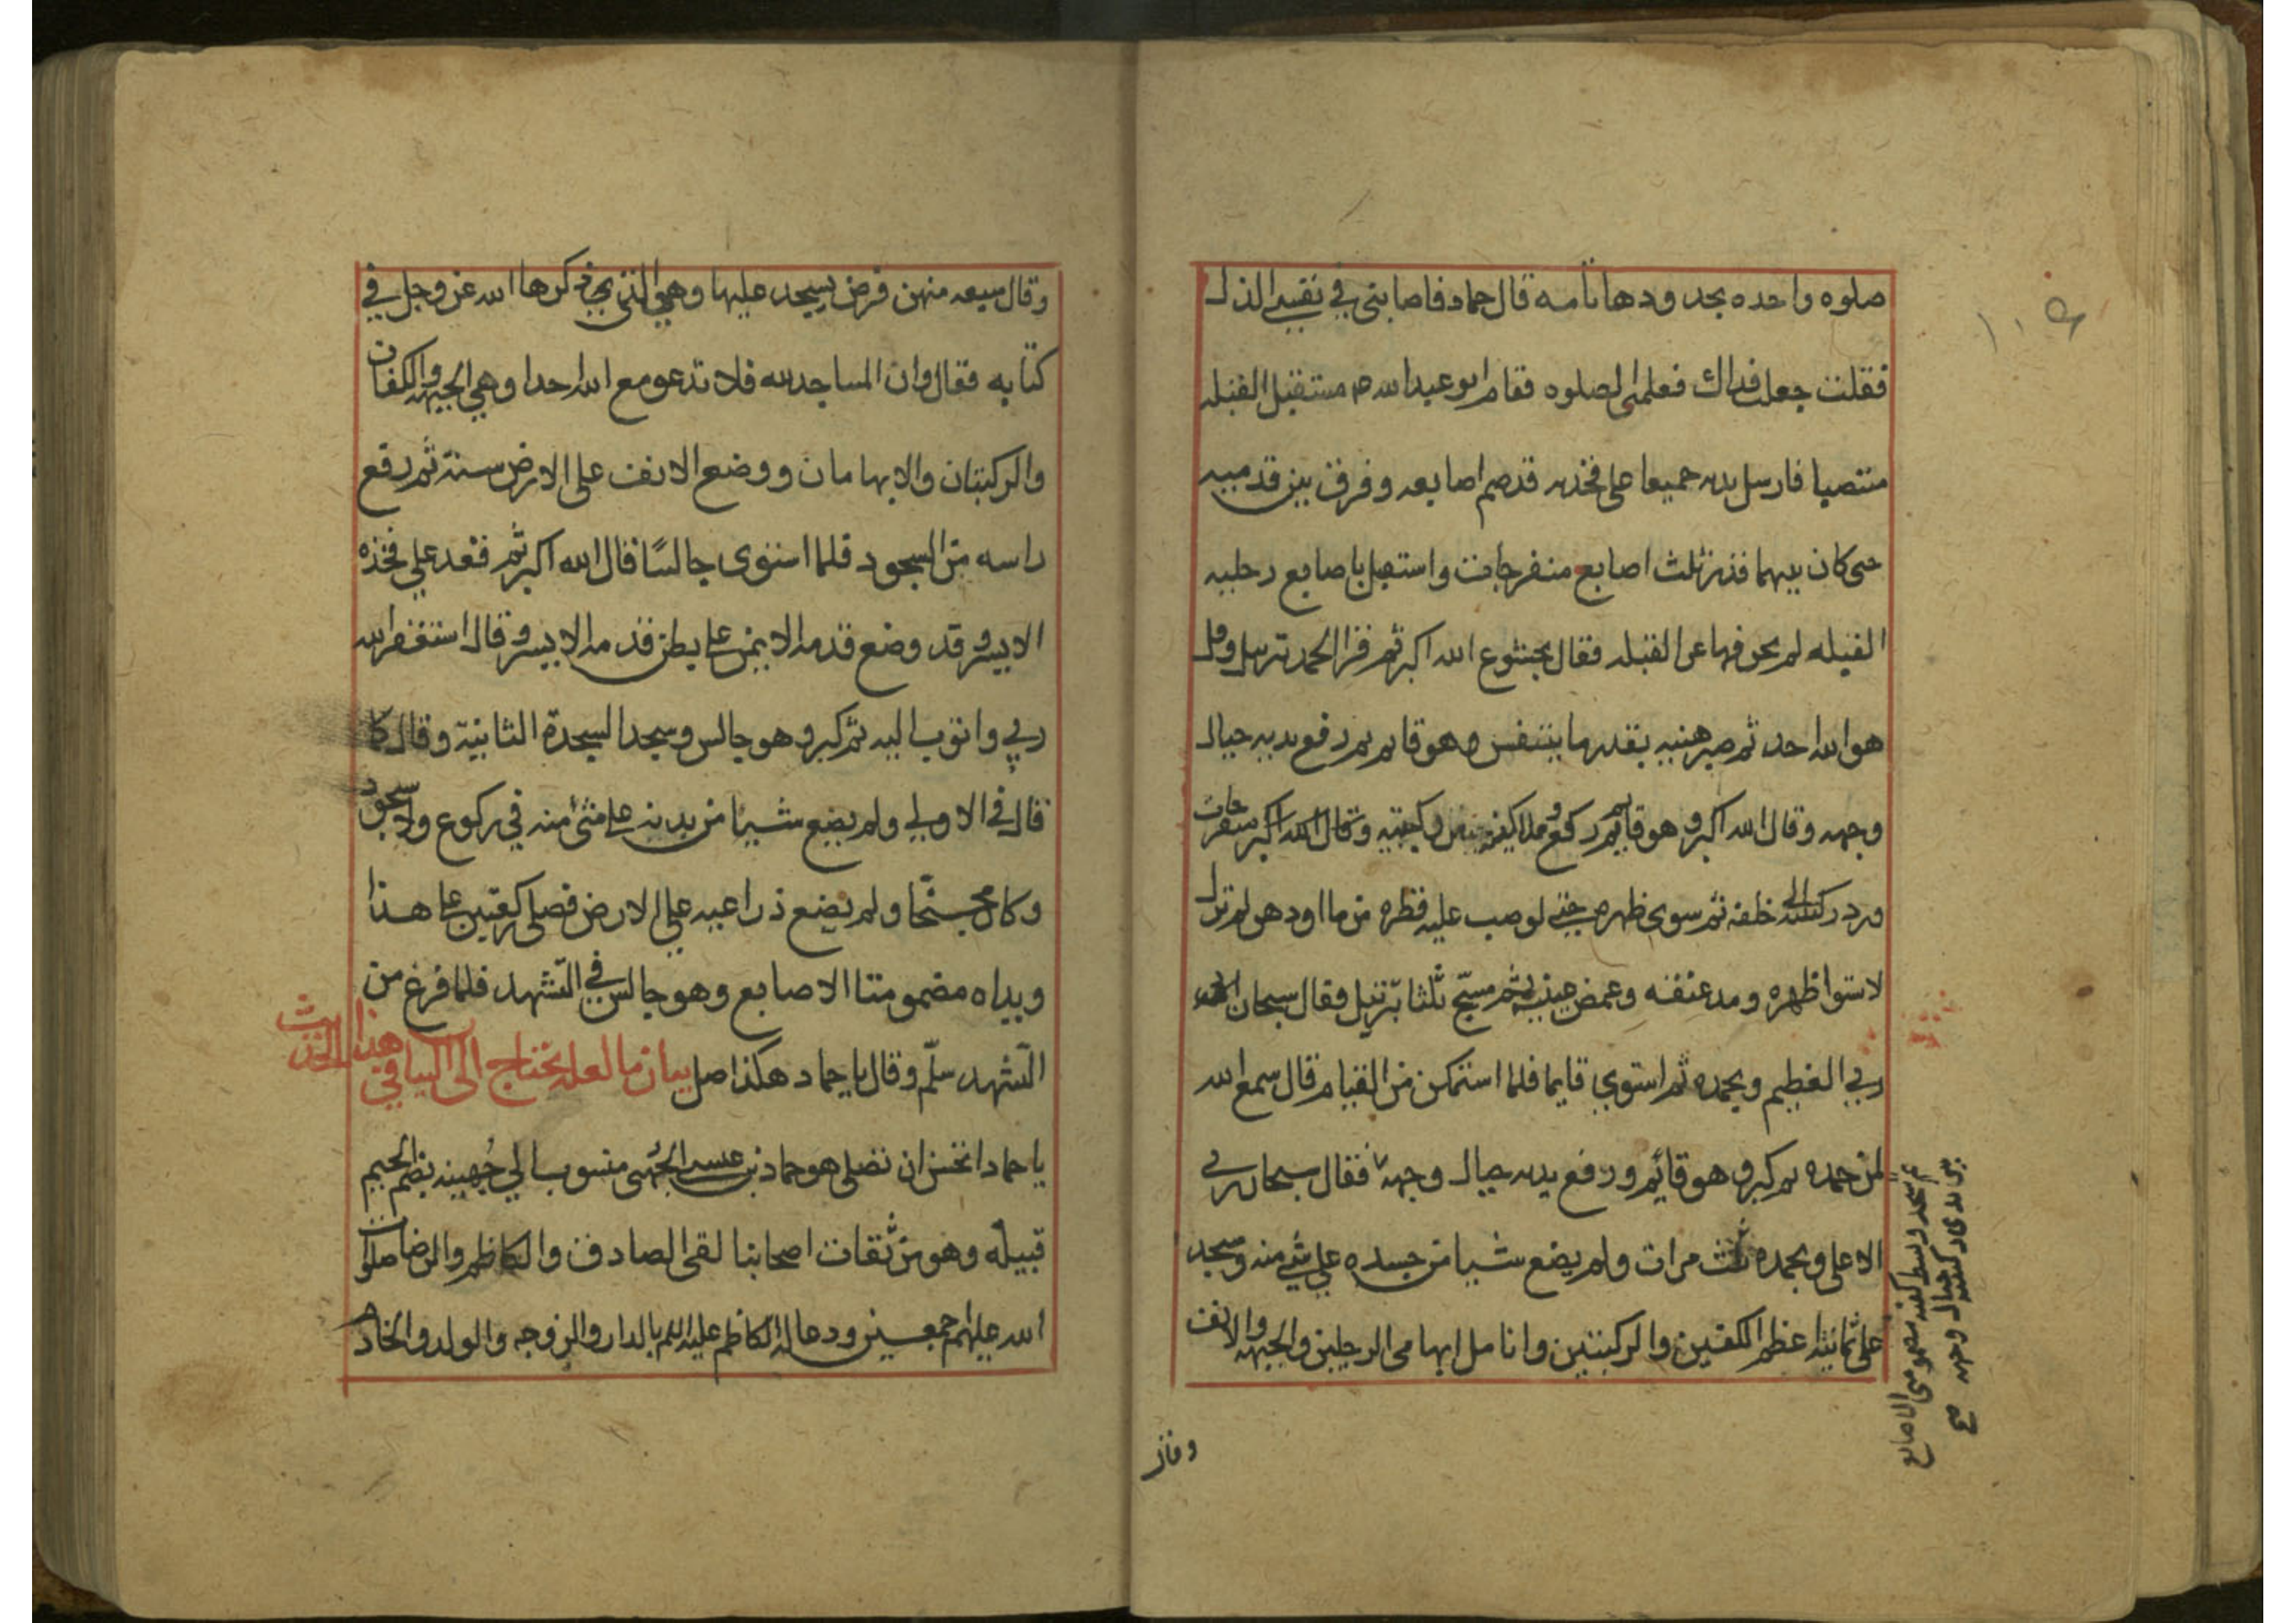 صلوه واحده بحدودها تامه قال حماد فاصابنی فی نفسی الذل
فقلت جعلت فداك فعلمنی الصلوه فقام ابو عبد الله م مستقبل القبله
منتصبا فارسل یدیه جمیعا علی فخذیه قد ضم اصابعه وفرق بین قدمیه
حتی کان بینهما قدر ثلث اصابع منفرجات واستقبل باصابع رجلیه
القبله لم یحرفهما عن القبله فقال بخشوع الله اکبر ثم قرا الحمد بترتیل وقل
هو الله احد ثم صبر هنیه بقدر ما یتنفس وهو قایم ثم رفع یدیه حیال
وجهه وقال الله اکبر وهو قایم ثم رکع وملا کفیه من رکبتیه منفرجات
ورد رکبتیه الی خلفه ثم سوی ظهره حتی لو صب علیه قطره من ما او دهن لم تزل
لاستوا ظهره ومد عنقه وغمض عینیه ثم سبّح ثلثا بترتیل فقال سبحان
ربی العظیم وبحمده ثم استوی قایما فلما استمکن من القیام قال سمع الله
لمن حمده ثم کبر وهو قائم ورفع یدیه حیال وجهه فقال سبحان ربی
الاعلی وبحمده ثلث مرات ولم یضع شیا من جسده علی شی منه وسجد
علی ثمانیة اعظم الکفین والرکبتین وانامل ابهامی الرجلین والجبهه والانف
ثم سجد وبسط کفیه مضمومتی الاصابع
بین یدی رکبتیه حیال وجهه صح
وقال
وقال سبعه منهن فرض یسجد علیها وهی التی ذکرها الله عز وجل فی
کتابه فقال وان المساجد لله فلا تدعو مع الله احدا وهی الجبهه والکفان
والرکبتان والابهامان ووضع الانف علی الارض سنة ثم رفع
راسه من السجود فلما استوی جالسًا قال الله اکبر ثم قعد علی فخذه
الایسر وقد وضع قدمه الایمن علی بطن قدمه الایسر وقال استغفر الله
ربی واتوب الیه ثم کبر وهو جالس وسجد السجدة الثانیة وقال کما
قال فی الاولی ولم یضع شیئا من بدنه علی شئ منه فی رکوع ولا سجود
وکان مجنّحا ولم یضع ذراعیه علی الارض فصلی رکعتین علی هذا
ویداه مضمومتا الاصابع وهو جالس فی التّشهد فلما فرغ من
التّشهد سلّم وقال یا حماد هکذا صل بیان ما لعله یحتاج الی البیان فی هذا الحدیث
یا حماد اتحسن ان تصلی هو حماد بن عیسی الجُهنی منسوب الی جُهینه بضم الجیم
قبیلة وهو من ثقات اصحابنا لقی الصادق والکاظم والرضا صلوات
الله علیهم اجمعین ودعا له الکاظم علیه السلم بالدار والزوجه والولد والخادم